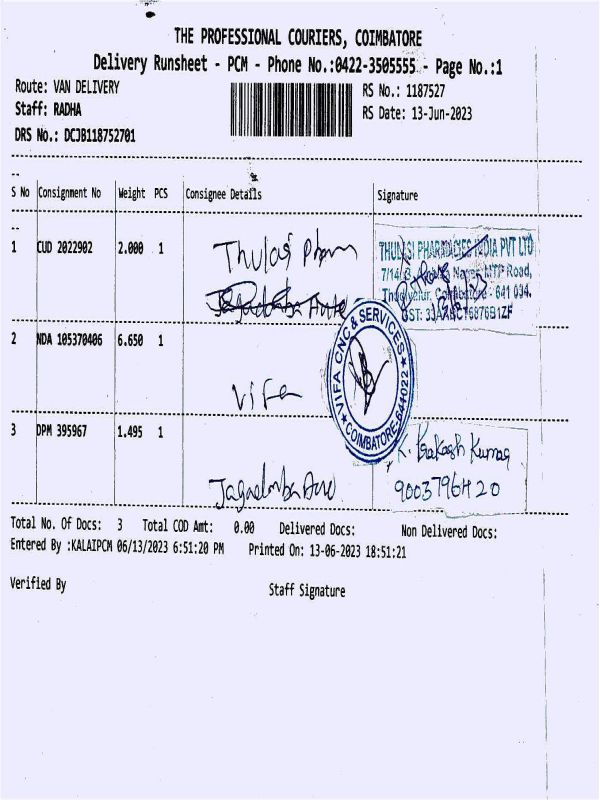 THE PROFESSIONAL COURIERS, COIMBATORE
Delivery Runsheet - PCM - Phone No.:0422-3505555 - Page No.:1
Route: VAN DELIVERY
RS No.: 1187527
Staff: RADHA
RS Date: 13-Jun-2023
DRS No.: DCJB118752701
S No Consignment No Weight PCS Consignee Details Signature
1 CUD 2022902 2.000 1 Thulasi Pharm
THULASI PHARMACIES INDIA PVT LTD
MTP Road,
Coimbatore - 641 034.
2 NDA 105370406 6.650 1
VIFA CNC & SERVICES
COIMBATORE-641022
Vifa
3 DPM 395967 1.495 1
K. Prakash Kumar
Jagadamba
9003796420
Total No. Of Docs: 3 Total COD Amt: 0.00 Delivered Docs: Non Delivered Docs:
Entered By :KALAIPCM 06/13/2023 6:51:20 PM Printed On: 13-06-2023 18:51:21
Verified By
Staff Signature